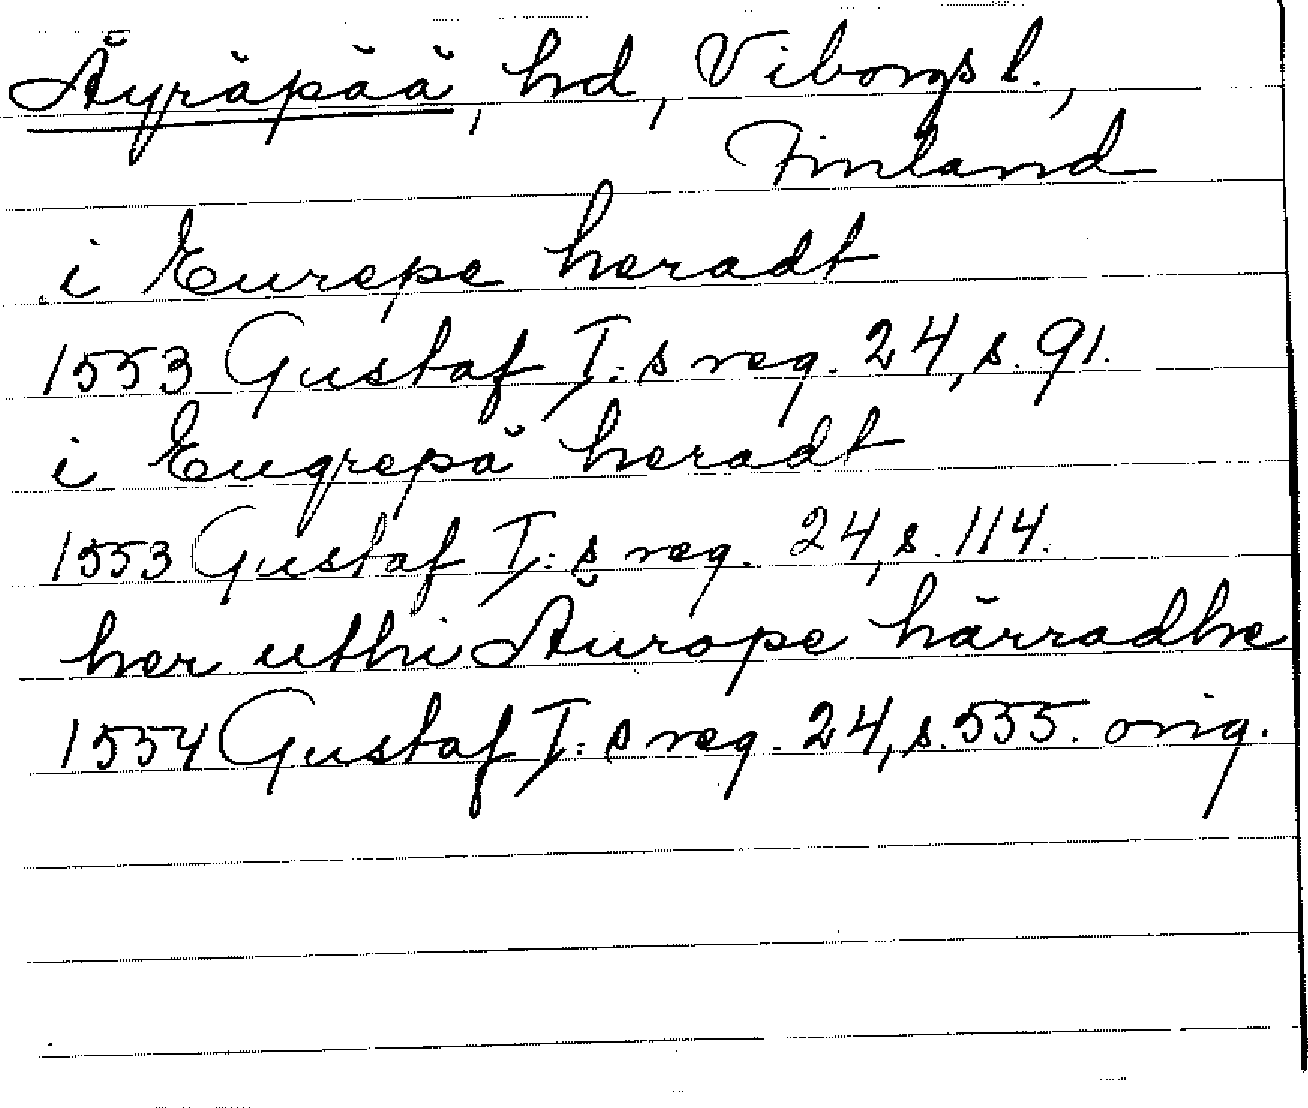 Äyräpää, hd, Viborgs l.,
Finland
i Eurepe heradt
1553 Gustaf I:s reg. 24, s. 91.
i Eugrepä heradt
1553 Gustaf I:s reg. 24, s. 114.
her uthi Äurope härradhe
1554 Gustaf I:s reg. 24, s. 555. orig.